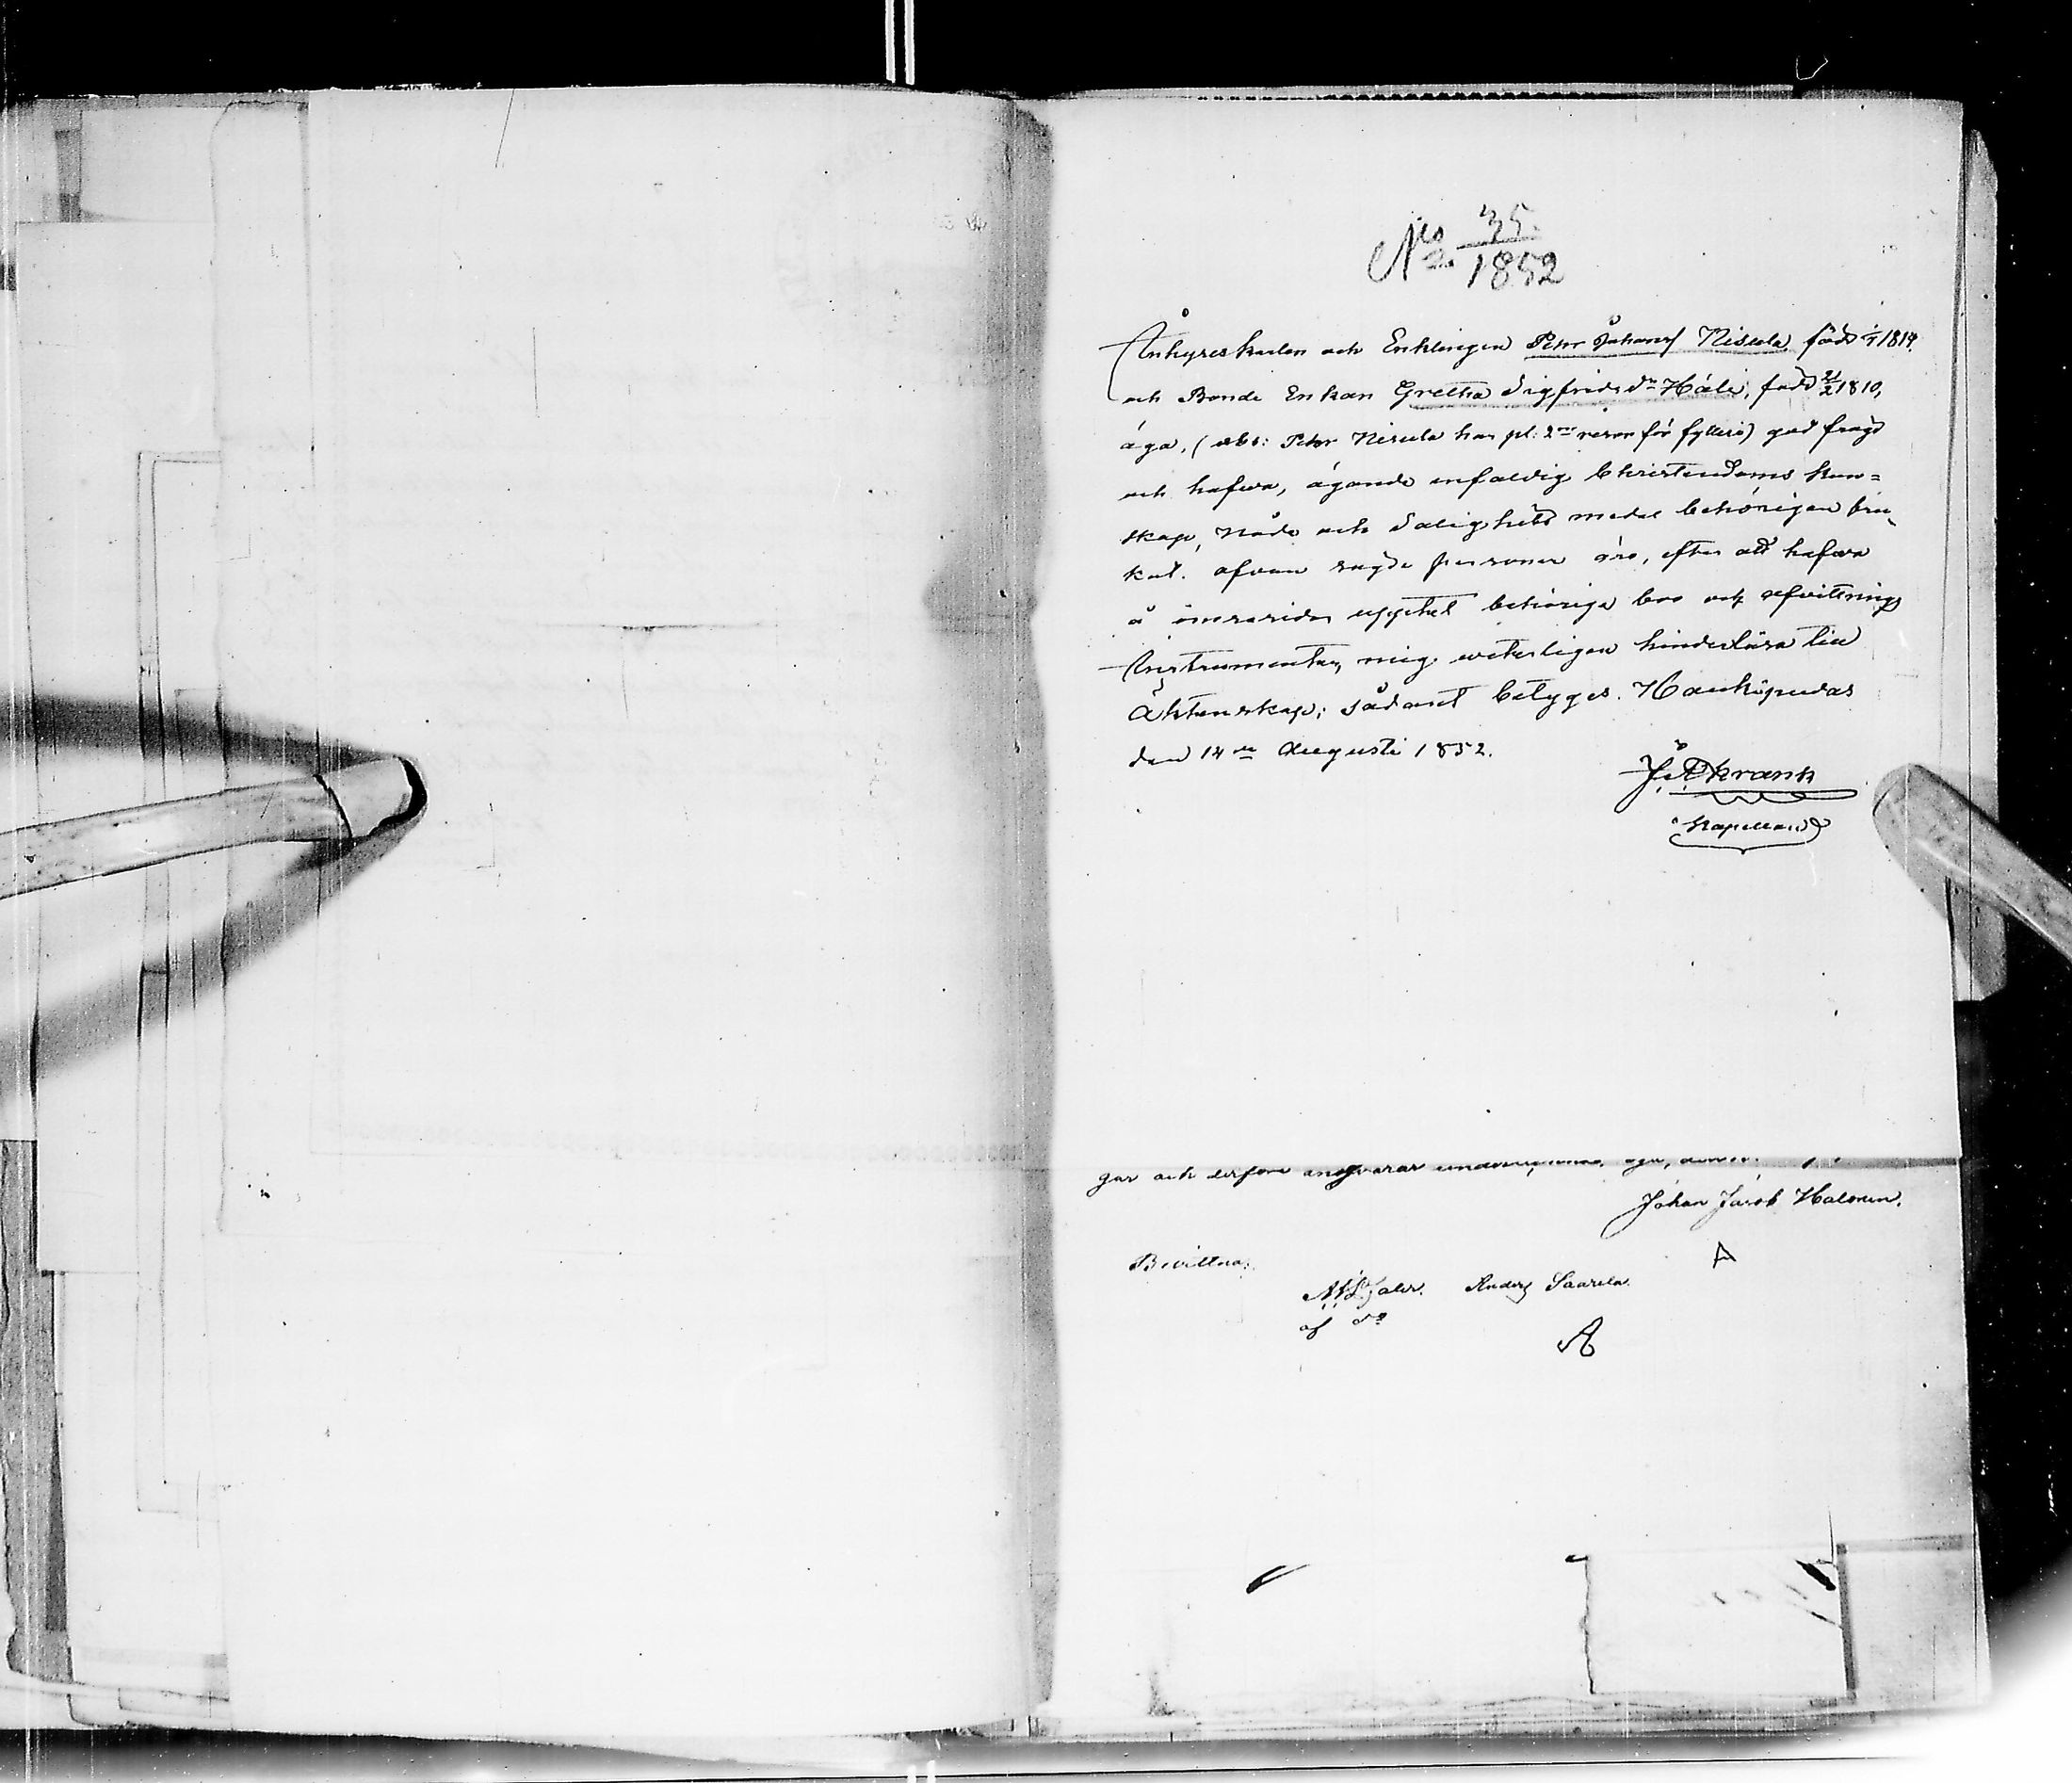 No 35
2. 1852
Inhyreskarlen och Enklingen Petter Johans Nisula född 1/1 1814.
och Bonde Enkan Gretha Sigfrids dr Häli, född 21/2 1810,
äga, (obs: Petter Nisula har pl: 2ne resor för fylleri) god fragd
och hafwa, ägande enfaldig Christendoms kun=
skap, Nåde och Salighets medel behörigen bru-
kat. ofvan sagde personer äro, efter att hafva
å ömse sidor upptet behöriga boo och afvittrings
Instrumenter, mig veterligen hinderlösa till
Äktenskap; sådant betyges. Haukipudas
den 14de Augusti 1852.
J. Skrank
Kapellan
gar och derföre ansvarar
Johan Jacob Halonen.
Bevittna:
Anders Saarela.
af
A
A